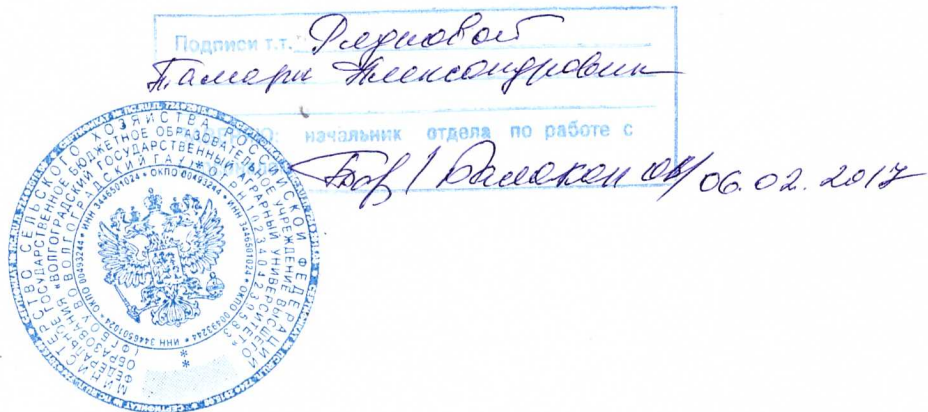 Подписи т.т. Рядновой
Тамары Александровны
начальник отдела по работе с
/ Балакон ОВ/ 06.02.2017
МИНИСТЕРСТВО СЕЛЬСКОГО ХОЗЯЙСТВА РОССИЙСКОЙ ФЕДЕРАЦИИ
ФЕДЕРАЛЬНОЕ ГОСУДАРСТВЕННОЕ БЮДЖЕТНОЕ ОБРАЗОВАТЕЛЬНОЕ УЧРЕЖДЕНИЕ ВЫСШЕГО
ОБРАЗОВАНИЯ «ВОЛГОГРАДСКИЙ ГОСУДАРСТВЕННЫЙ АГРАРНЫЙ УНИВЕРСИТЕТ»
(ФГБОУ ВО ВОЛГОГРАДСКИЙ ГАУ) * ОГРН 1023404230583
* ИНН 3446501024 * ОКПО 00493244 * ИНН 3446501024 * ОКПО 00493244 * ИНН 3446501024 * ОКПО 00493244